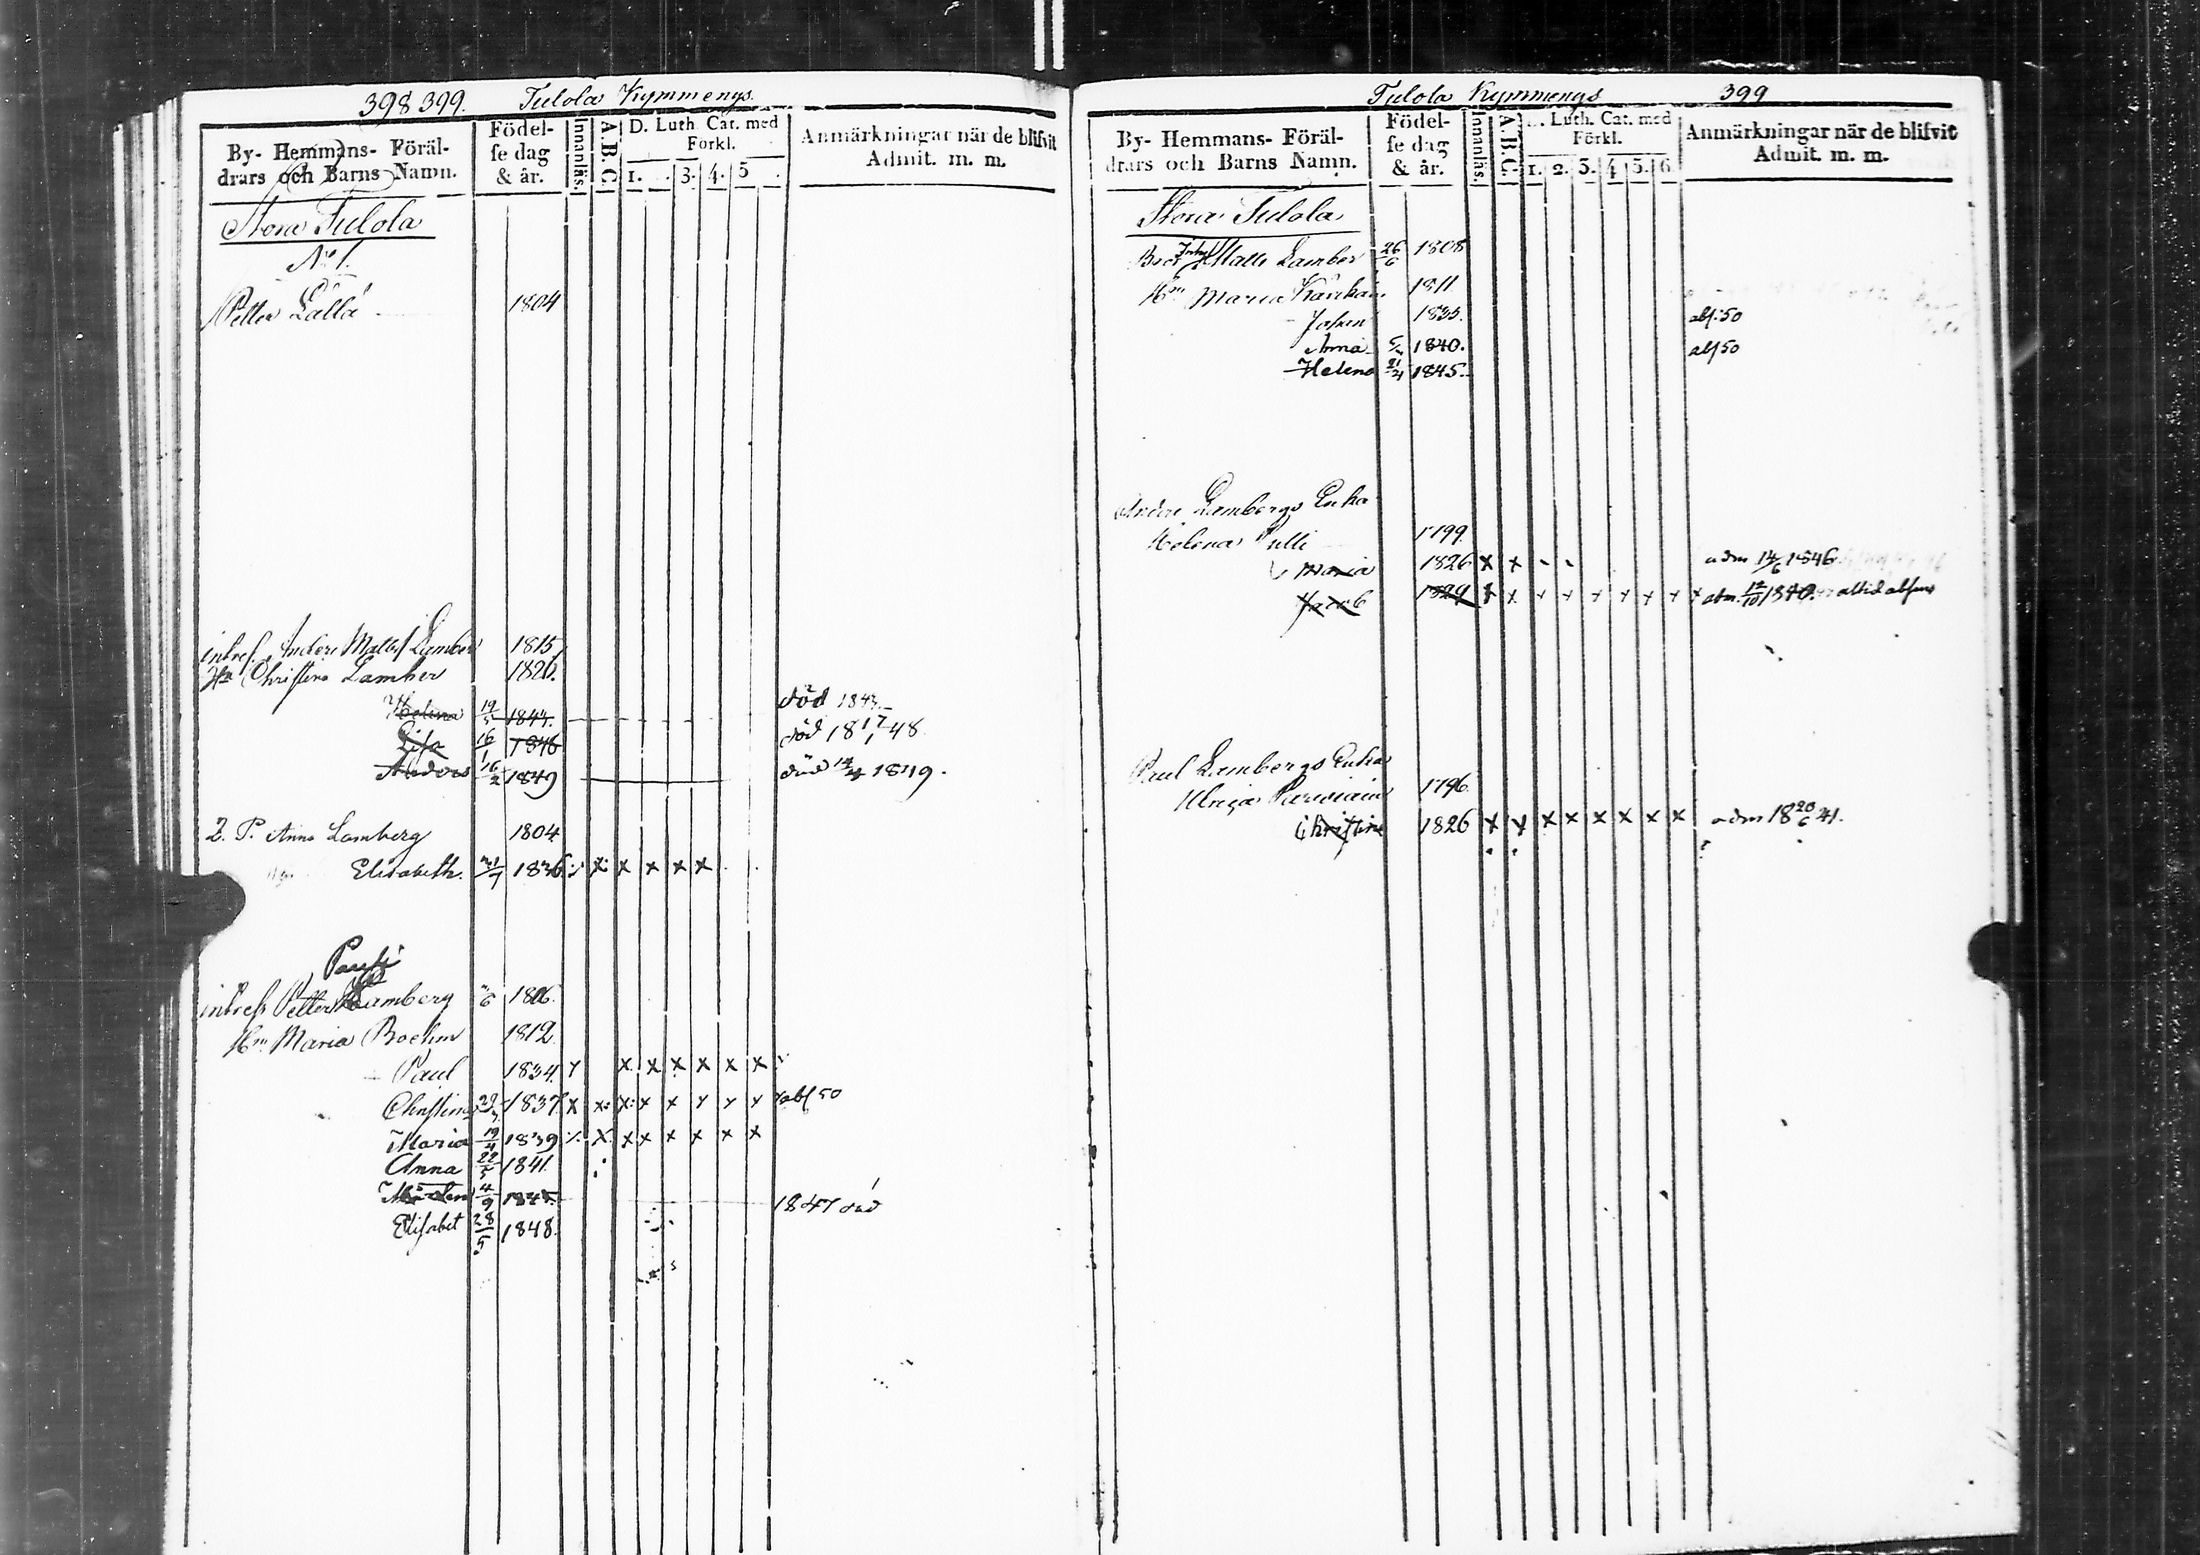 398 399. Tulola Kymmenys.
By- Hemmans- Föräl-
drars och Barns Namn.
Födel-
se dag
& år.
Innanläs.
A.B.C.
D. Luth. Cat. med
Förkl.
1. 3. 4. 5
Anmärkningar när de blifvit
Admit. m. m.
Stora Tulola
No 1.
Petter Lallå 1804
intres. Anders Matts Lamber 1815
Hn Christina Lamber 1820.
Helena 19/5 1844. död 1844
Lisa 16/1 1846 död 18 17/1 48
Anders 16/2 1849 död 14/4 1849.
I. P. Anna Lamberg 1804
Elisabeth. 31/7 1836 x x x x x
Paul
intress Petter Lamberg 6 1806.
Hn Maria Boehm 1812
Paul 1834. x x x x x x x
Christina 1837 x x x x x x x x abs 50
Maria 19/4 1839 x x x x x x x
Anna 22/5 1841.
4/9 1845. 1847 död
Elisabet 28/5 1848.
Tulola Kymmenys 399
By- Hemmans- Föräl-
drars och Barns Namn.
Födel-
se dag
& år.
Innanläs.
A.B.C.
D. Luth. Cat. med
Förkl.
1. 2. 3. 4 5. 6
Anmärkningar när de blifvit
Admit. m. m.
Stora Tulola
Bror Matts Lamber 26/6 1808
Hn Maria 1811
Johan 1835. abs. 50
Anna 1840. abs 50
Helena 21/4 1845.
Anders Lambergs Enka
Helena Pulli 1799.
Maria 1826 x x - - adm 14/6 1846
Jacob 1829 x x x x x x x x x adm. 12/10 1840. altid absens
Paul Lambergs Enka
Parviain 1796
Christina 1826 x x x x x x x x adm 18 20/6 41.